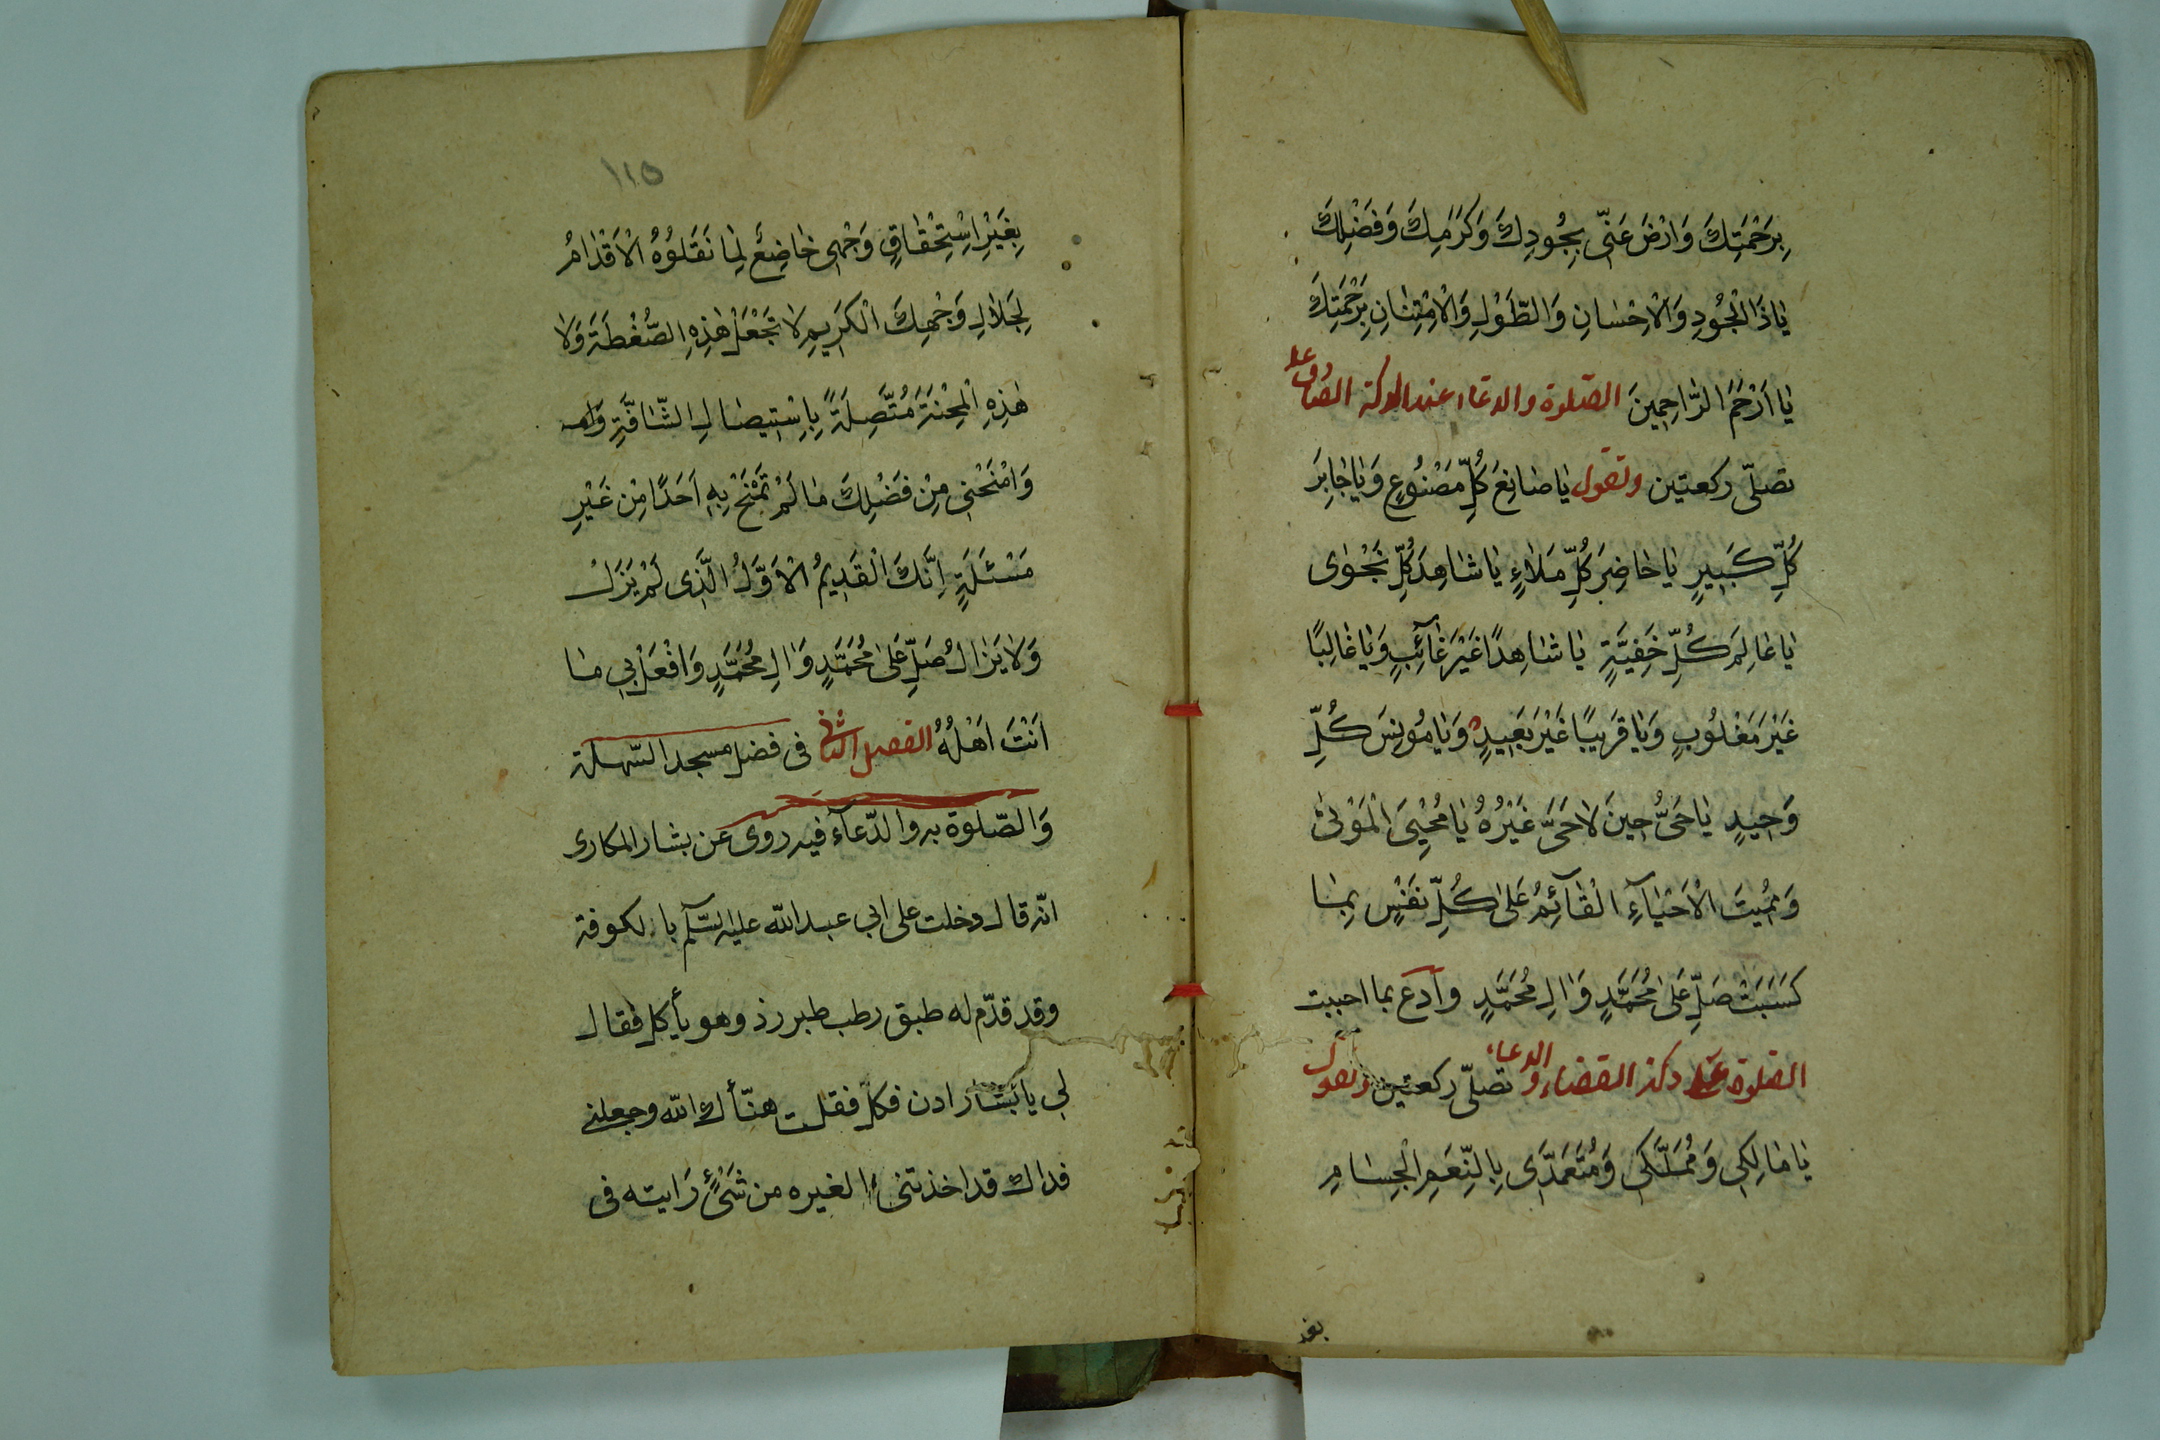 بِرَحْمَتِكَ وَارْضَ عَنّی بِجُودِكَ وَكَرَمِكَ وَفَضْلِكَ
یٰا ذَا الْجُودِ وَالْاِحْسٰانِ وَالطَّوْلِ وَالْاِمْتِنٰانِ بِرَحْمَتِكَ
یٰا اَرْحَمَ الرّٰاحِمِینَ الصّلوة والدعاء عند دكة الصادق علیه
تصلّی ركعتین وتقول یٰا صٰانِعَ كُلِّ مَصْنُوعٍ وَیٰا جٰابِرَ
كُلِّ كَبِیرٍ یٰا حٰاضِرَ كُلِّ مَلٰاءٍ یٰا شٰاهِدَ كُلِّ نَجْوٰی
یٰا عٰالِمَ كُلِّ خَفِیَّةٍ یٰا شٰاهِدًا غَیْرَ غٰآئِبٍ وَیٰا غٰالِبًا
غَیْرَ مَغْلُوبٍ وَیٰا قَرِیبًا غَیْرَ بَعِیدٍ وَیٰا مُونِسَ كُلِّ
وَحِیدٍ یٰا حَیُّ حِینَ لٰا حَیَّ غَیْرُهُ یٰا مُحْیِیَ الْمَوْتیٰ
وَمُمِیتَ الْاَحْیٰآءِ الْقٰآئِمُ عَلیٰ كُلِّ نَفْسٍ بِمٰا
كَسَبَتْ صَلِّ عَلیٰ مُحَمَّدٍ وَاٰلِ مُحَمَّدٍ وادع بما احببت
الصّلوة علی دكة القضاء والدعاء تصلّی ركعتین وتقول
یٰا مٰالِكِی وَمُمَلِّكِی وَمُتَعَمِّدِی بِالنِّعَمِ الْجِسٰامِ
بغیر
١١٥
بِغَیْرِ اسْتِحْقٰاقٍ وَجْهِی خٰاضِعٌ لِمٰا تَعْلُوُهُ الْاَقْدٰامُ
لِجَلٰالِ وَجْهِكَ الْكَرِیمِ لٰا تَجْعَلْ هٰذِهِ الضُّغْطَةَ وَلٰا
هٰذِهِ الْمِحْنَةَ مُتَّصِلَةً بِاسْتِیصٰالِ الشّٰافَّةِ
وَامْنَحْنِی مِنْ فَضْلِكَ مٰا لَمْ تَمْنَحْ بِهِ اَحَدًا مِنْ غَیْرِ
مَسْئَلَةٍ اِنَّكَ الْقَدِیمُ الْاَوَّلُ الَّذِی لَمْ یَزَلْ
وَلٰا یَزٰالُ صَلِّ عَلیٰ مُحَمَّدٍ وَاٰلِ مُحَمَّدٍ وَافْعَلْ بِی مٰا
اَنْتَ اَهْلُهُ الفصل الثانی فی فضل مسجد السّهلة
وَالصّلوة به والدّعآء فیه روی عن بشار المكاری
انّه قال دخلت علی ابی عبدالله علیه السّلٰم بالكوفة
وقد قدّم له طبق رطب طبرزذ وهو یأكل فقال
لی یا بَشّار ادن فكل فقلت هنّأك الله وجعلنی
فداك قد اخذتنی الغیره من شَیْءٍ رَایته فی